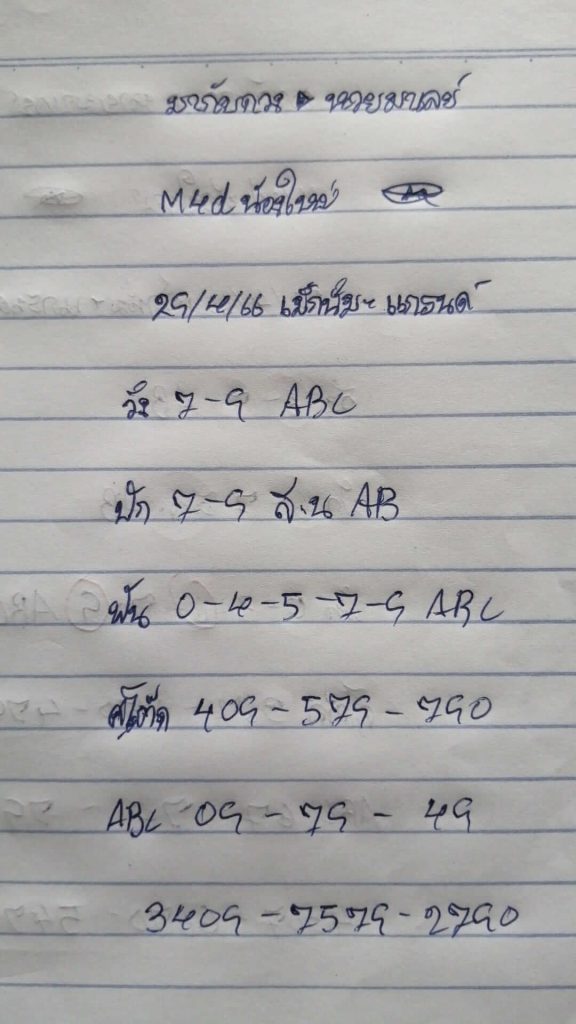 มากับดวง นายมนลย์
M4d น้องใหม่
29/4/66 เม็กนั่ม - แกรนด์
วิ่ง 7-9 ABC
ปัก 7-9 ส.น AB
ฟัน 0-4-5-7-9 ABC
409-579-790
ABC 09-79-49
3409-7579-2790